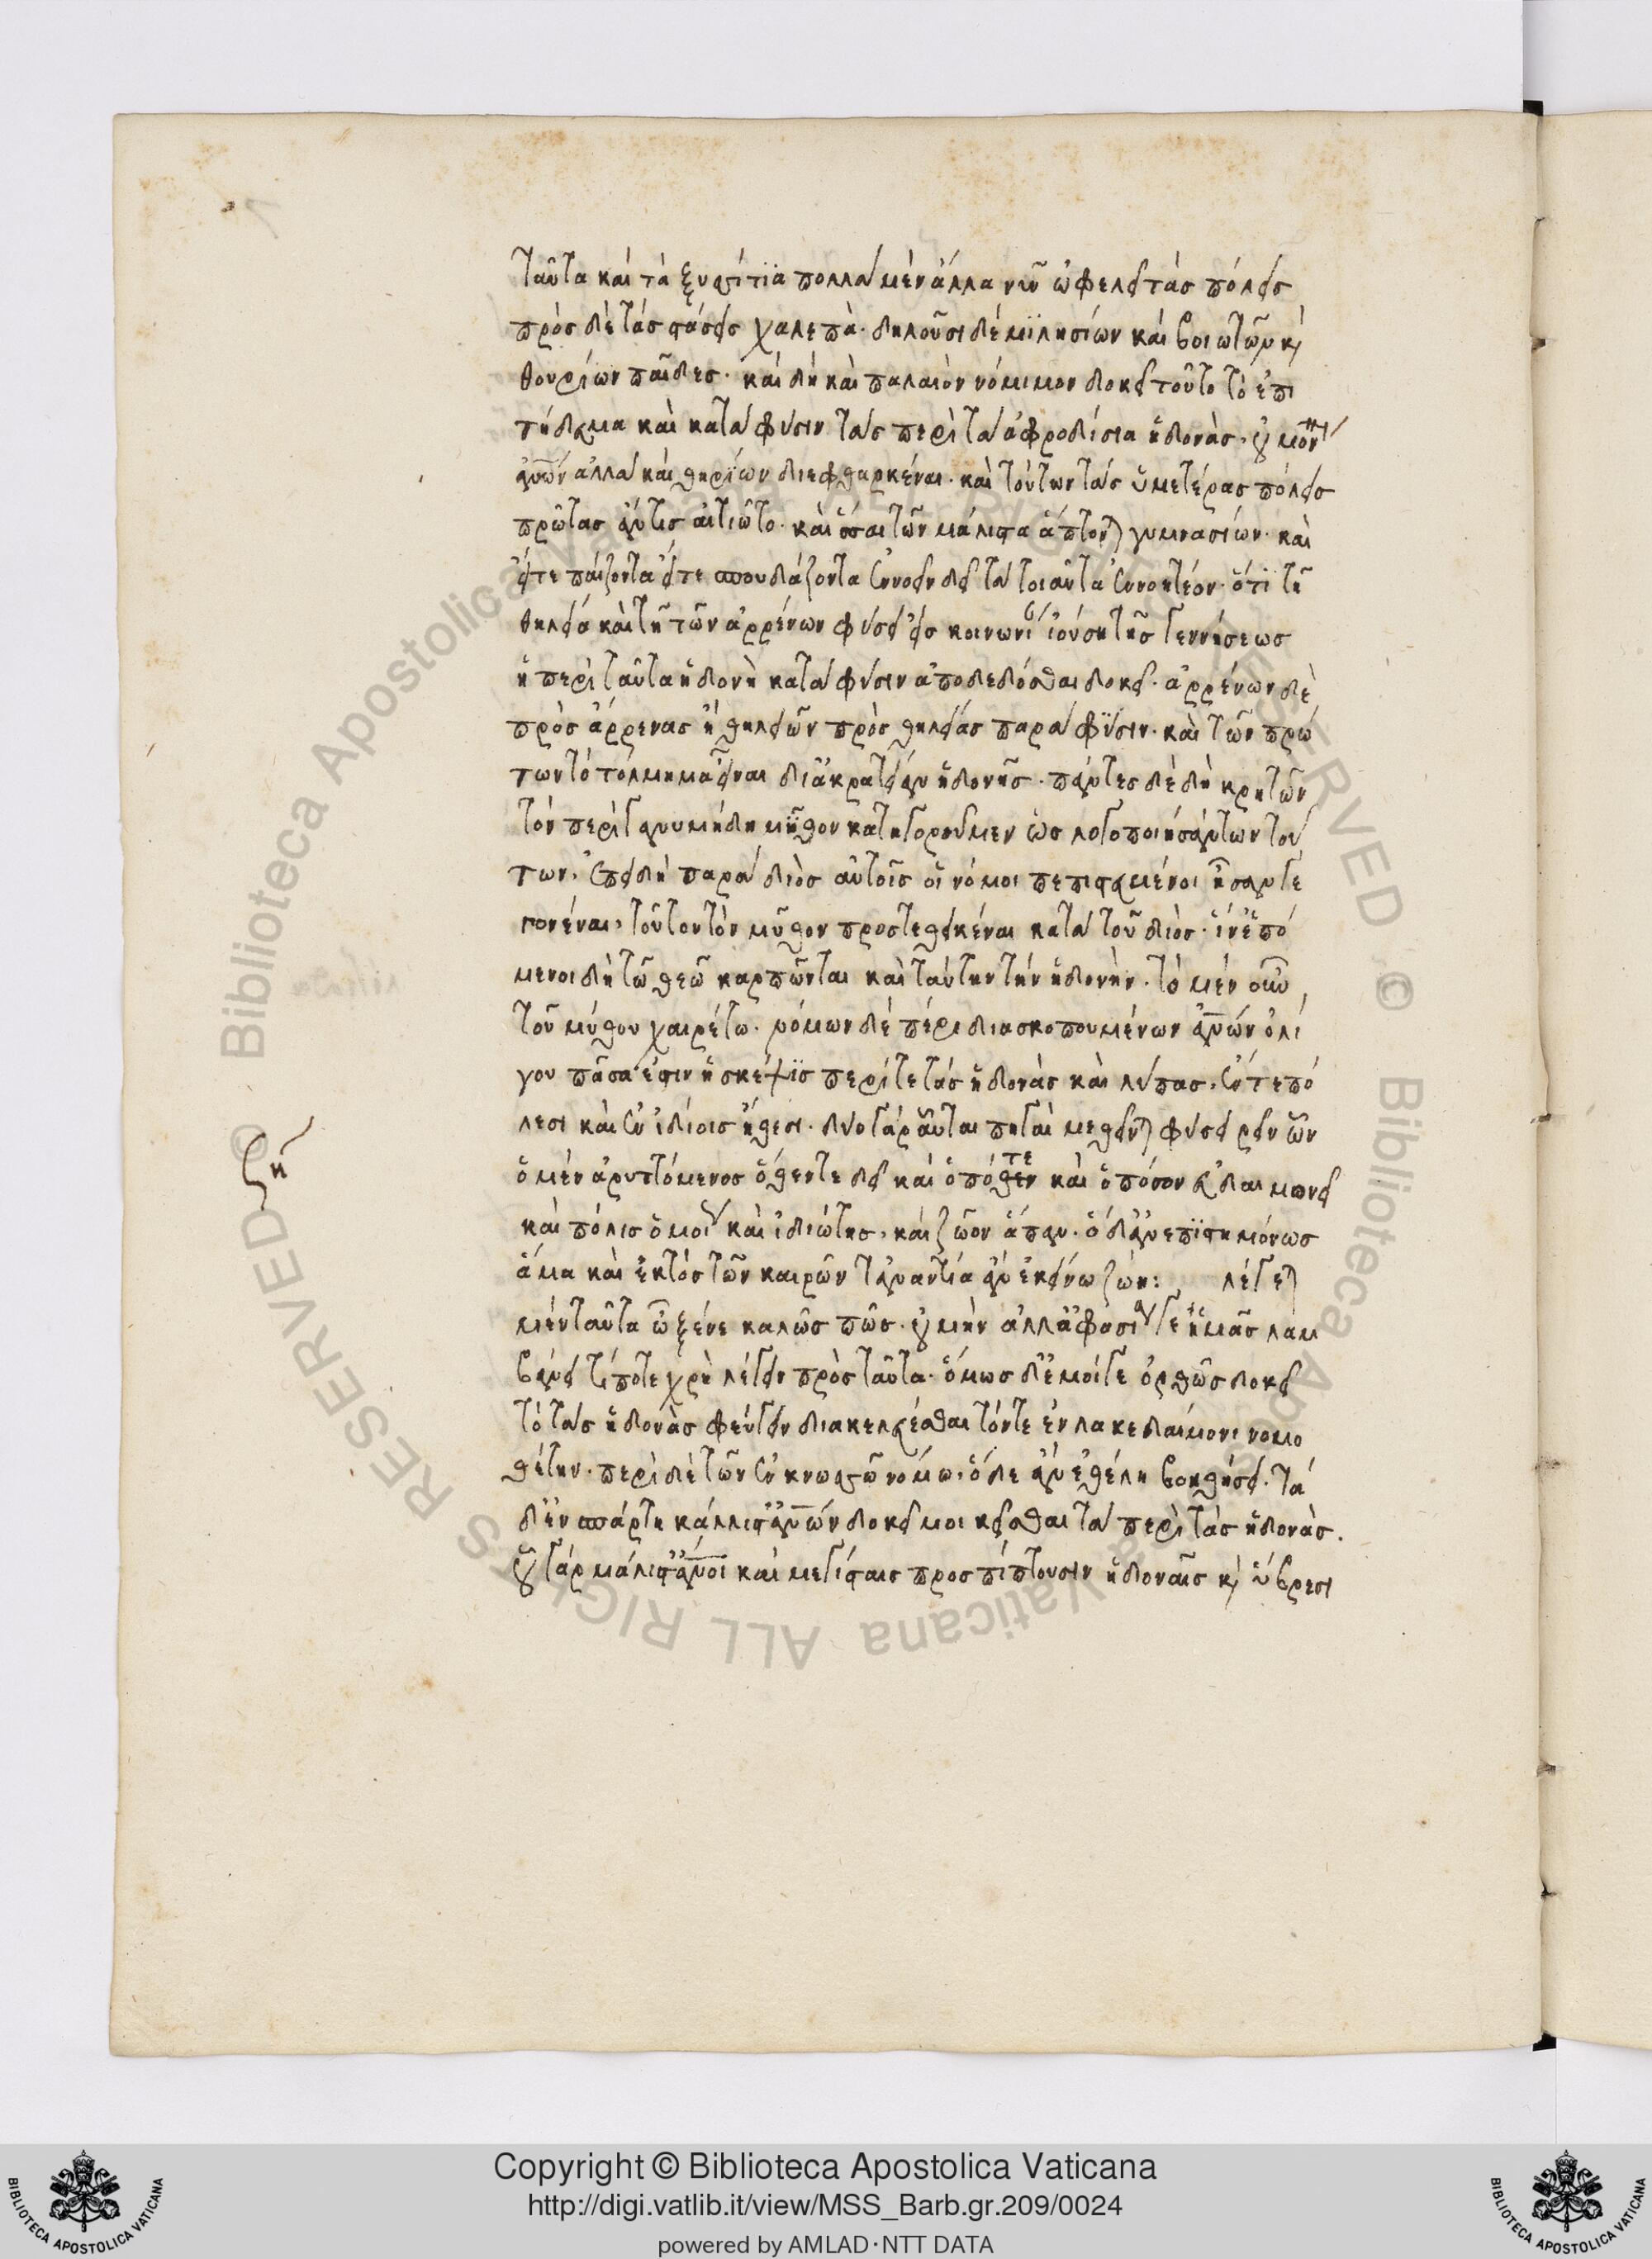 ταῦτα καὶ τὰ ξυσίτϊα πολλὰ μὲν ἄλλα νῦν ὠφελεῖ τὰς πόλεις
πρὸς δὲ τὰς στάσεις χαλεπὰ· δηλοῦσι δὲ μϊλησίων καὶ βοιωτῶν κ
θουρίων παῖδες· καὶ δὴ καὶ παλαιὸν νόμιμον δοκεῖ τοῦτο τὸ ἐπι
τήδευμα καὶ κατὰ φύσιν τὰς περὶ τὰ ἀφροδίσια ἡδονὰς, οὐ μόνον
ἀνων ἀλλὰ καὶ θηρίων διεφθαρκέναι· καὶ τούτων τὰς ὑμετέρας πόλεις
πρώτας ἄν τις αἰτιῶτο· καὶ ὅσαι τῶν μάλιστα ἅπτονται γυμνασίων· καὶ
εἴτε παίζοντα εἴτε σπουδάζοντα ἐννοεῖν δεῖ τὰ τοιαῦτα ἐννοητέον· ὅτϊ τῆ
θηλεία καὶ τῆ τῶν ἀρρένων φύσει εἰς κοινωνίαν ἰούση τῆς γεννήσεως
ἡ περὶ ταῦτα ἡδονὴ κατὰ φύσιν ἀποδεδόσθαι δοκεῖ· ἀρρένων δὲ
πρὸς ἄρρενας ἢ θηλειῶν πρὸς θηλείας παρὰ φύσιν· καὶ τῶν πρώ
των τὸ τόλμημα εἶναι δι ἀκράτειαν ἡδονῆς· πάντες δὲ δὴ κρητῶν
τὸν περὶ γανυμήδη μῦθον κατηγοροῦμεν ὡς λογοποιησάντων τού
των, ἐπειδὴ παρὰ διὸς αὐτοῖς οἱ νόμοι πεπιστευμένοι ἦσαν γε
γονέναι, τοῦτον τὸν μῦθον προστεθεικέναι κατὰ τοῦ διός· ἵν ἑπό
μενοι δὴ τῶ θεῶ καρπῶνται καὶ ταύτην τὴν ἡδονήν· τὸ μὲν οὖν
τοῦ μύθου χαιρέτω· νόμων δὲ πέρι διασκοπουμένων ἀνων ὀλί
γου πᾶσα ἐστιν ἡ σκέψϊς περί τε τὰς ἡδονὰς καὶ λύπας, ἔν τε πό
λεσι καὶ ἐν ἰδίοις ἤθεσι· δύο γὰρ αὗται πηγαὶ μεθεῖνται φύσει ῥεῖν ὧν
ὁ μὲν ἀρυττόμενος ὅθεν τε δεῖ καὶ ὁπόθεν τε καὶ ὁπόσον εὐδαιμονεῖ
καὶ πόλις ὁμοίως καὶ ἰδιώτης, καὶ ζῶον ἅπαν· ὁ δ ἀνεπϊστημόνως
ἅμα καὶ ἐκτὸς τῶν καιρῶν τἀναντία ἂν ἐκείνω ζώη: λέγεται
μὲν ταῦτα ὦ ξένε καλῶς πως· οὐ μὴν ἀλλ ἀφασία γε ἡμᾶς λαμ
βάνει τί ποτε χρὴ λέγειν πρὸς ταῦτα· ὅμως δ ἔμοιγε ὀρθῶς δοκεῖ
τὸ τὰς ἡδονὰς φεύγειν διακελεύεσθαι τόν τε ἐν λακεδαίμονι νομο
θέτην· περὶ δὲ τῶν ἐν κνωσσῶ νόμω, ὅδε ἂν ἐθέλη βοηθήσει· τὰ
δ ἐν σπάρτη κάλλιστ ἀνων δοκεῖ μοι κεῖσθαι τὰ περὶ τὰς ἡδονάς.
οὗ γὰρ μάλιστ ἄνοι καὶ μεγίσταις προσπίπτουσιν ἡδοναῖς κ ὕβρεσι
ζη
© Biblioteca Apostolica Vaticana ALL RIGHTS RESERVED © Biblioteca Apostolica Vaticana ALL RIGHTS RESERVED
Copyright © Biblioteca Apostolica Vaticana
http://digi.vatlib.it/view/MSS_Barb.gr.209/0024
powered by AMLAD·NTT DATA
BIBLIOTECA APOSTOLICA VATICANA
BIBLIOTECA APOSTOLICA VATICANA